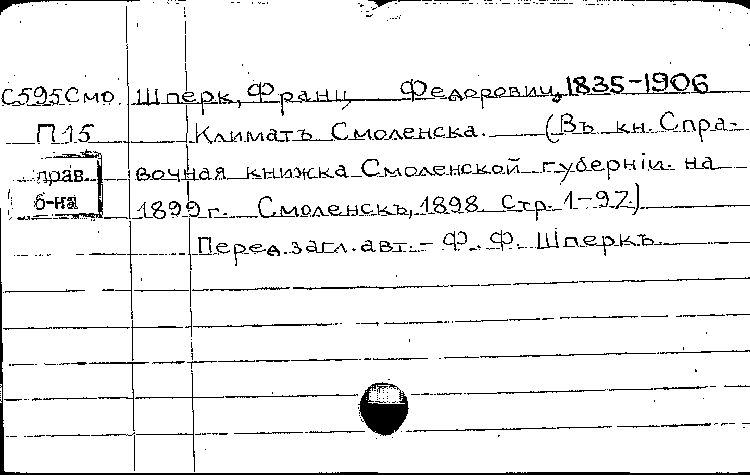 С595Смо Шперк, Франц Федорович, 1835-1906
П15 Климатъ Смоленска. (Въ кн. Спра-
прав. вочная книжка Смоленской губернiи. на
б-на 1899 г. Смоленскъ, 1898. Стр. 1-97.)
Перед.загл.авт.- Ф. Ф. Шперкъ